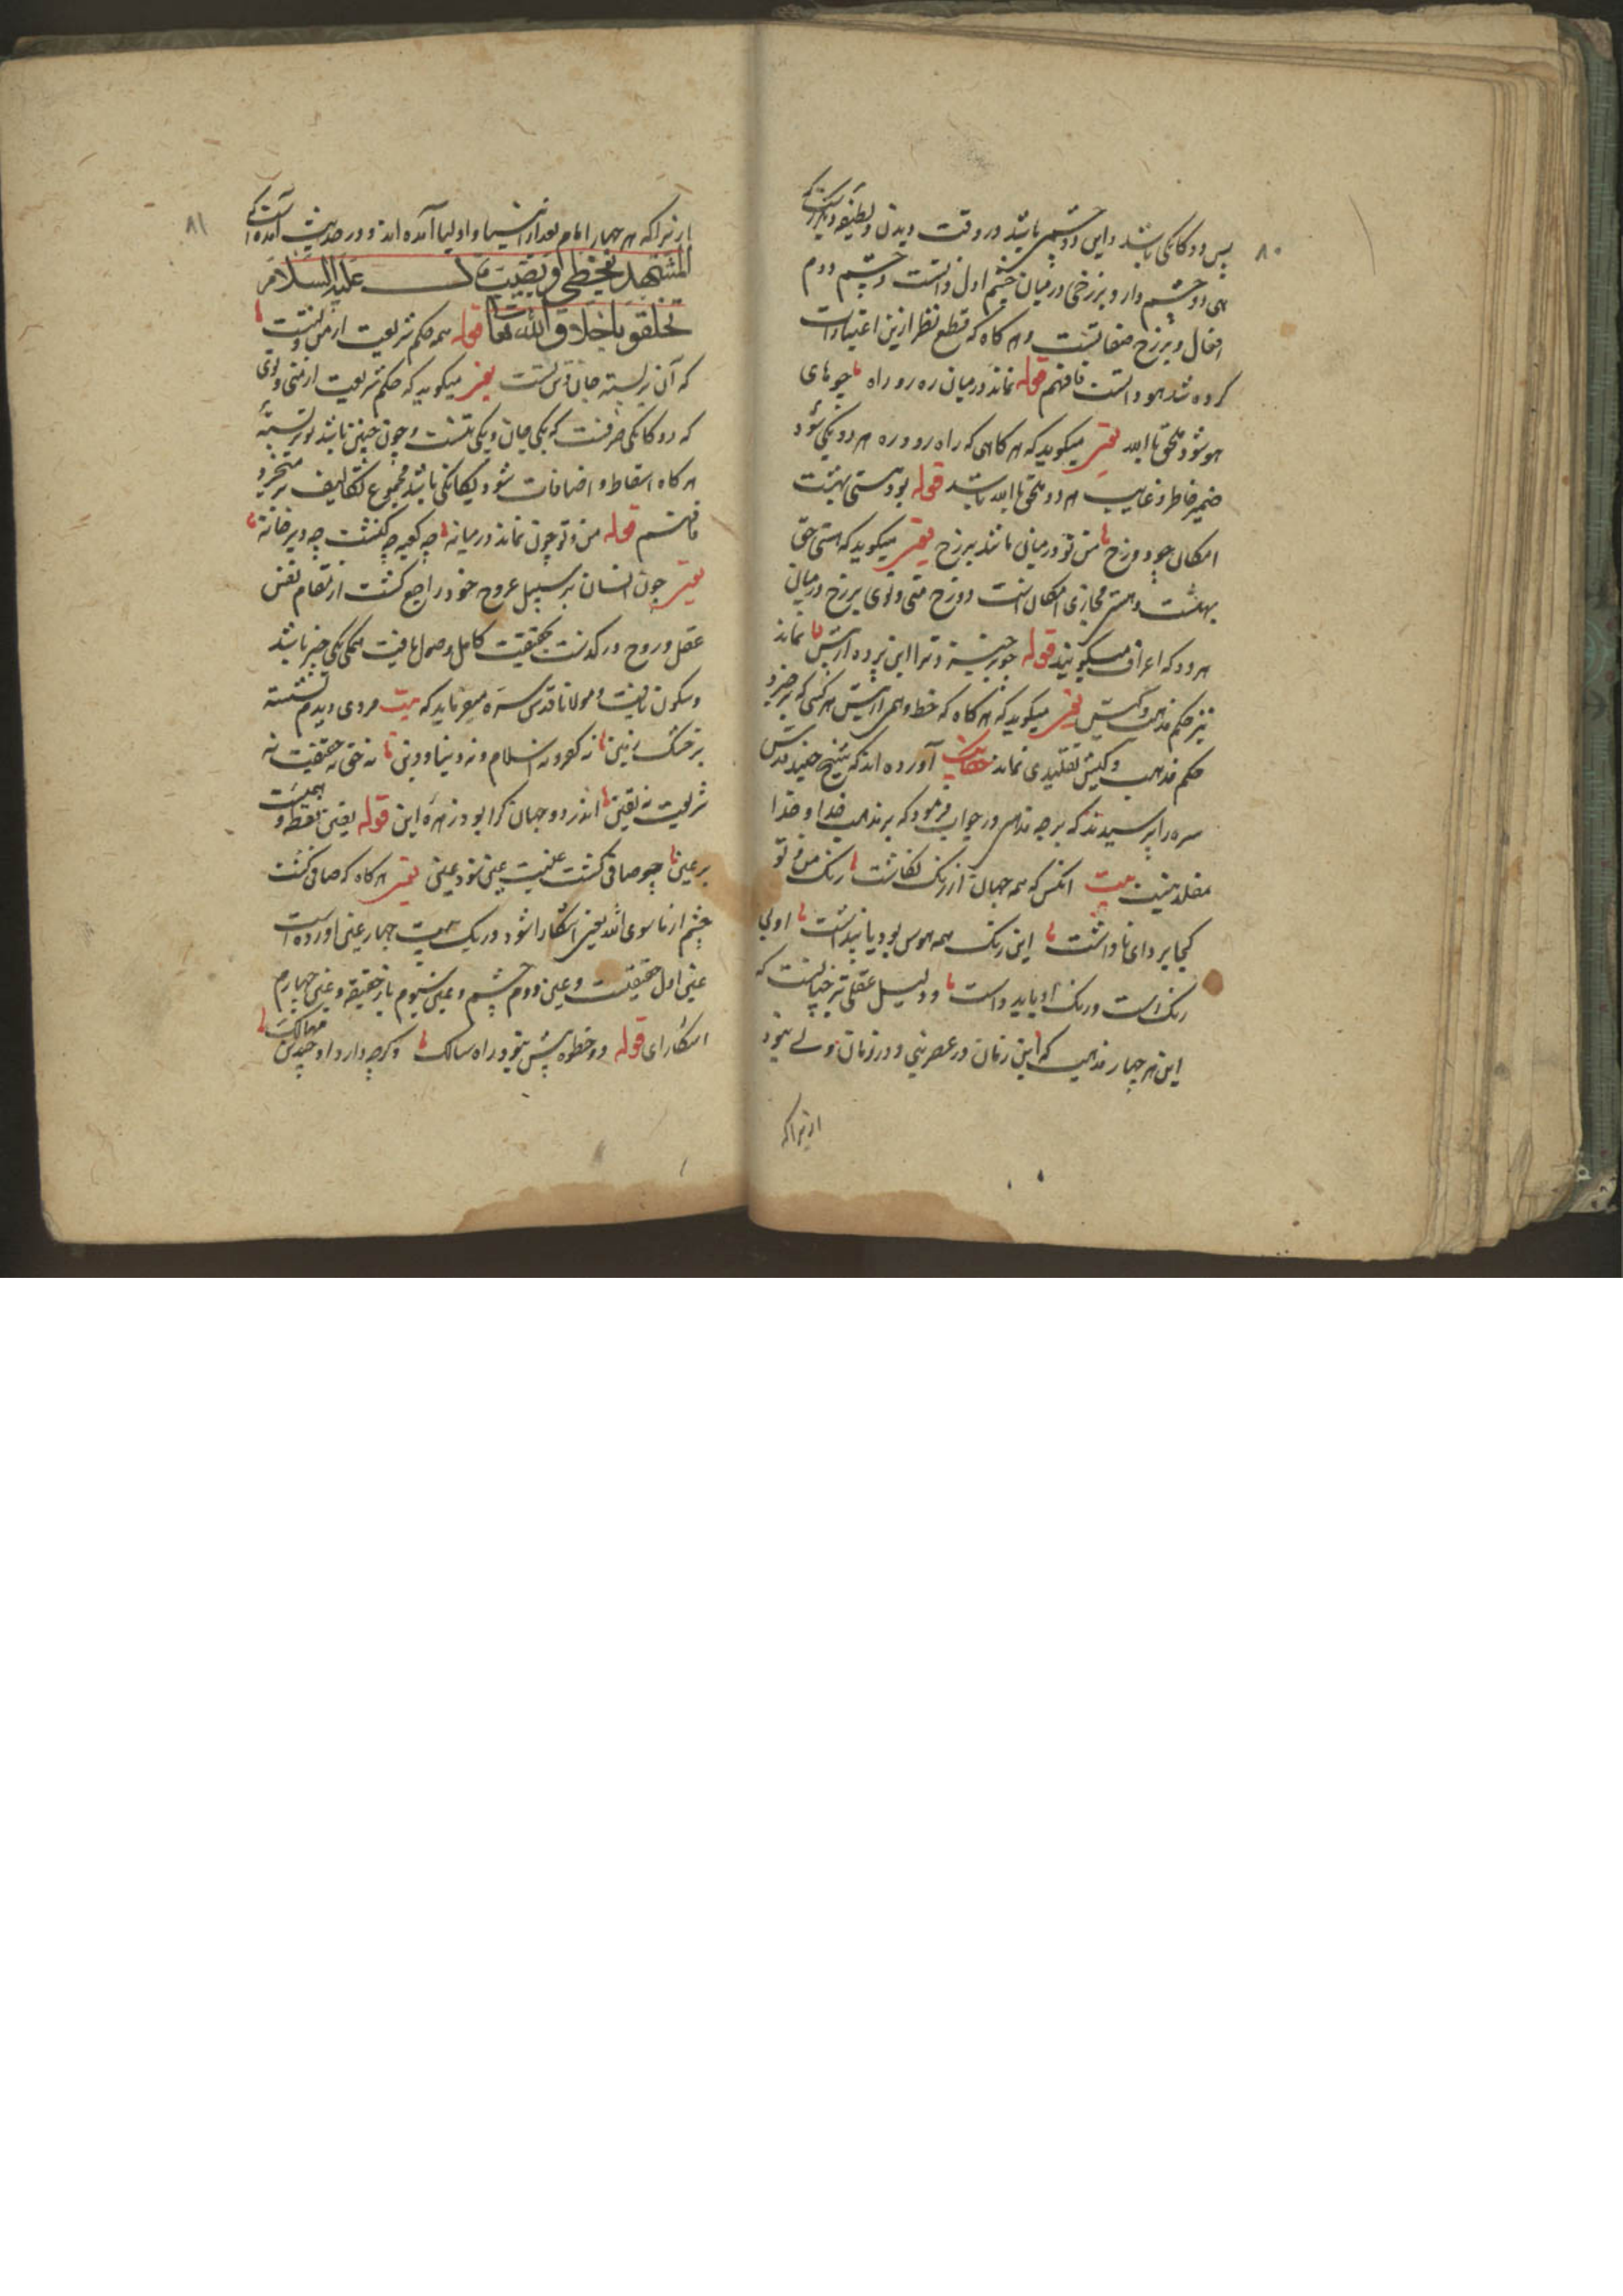 ۸۰
پس دوکانکی باشد و این دو چشمی باشد در وقت دیدن و لطیفه دیگر آنست که
هی دو چشم دارد برزخی درمیان چشم اول ذاتست و چشم دوم
افعال و برزخ صفاتست و هر کاه که قطع نظر ازین اعتبارات
کرده شد هو ذاتست فافهم قوله نماند درمیان ره رو راه چو های
هو شود ملحق باالله یعنی میکوید که هر کاهی که راه رو و ره هر دو یکی شود
ضمیر خاطر و غایب هر دو ملحق باالله باشد قوله بود هستی بهشت
امکان چو دوزخ من تو درمیانی مانند برزخ یعنی میکوید که هستی حق
بهشت و هستی مجازی امکان است دوزخ منی و توی برزخ درمیان
هر دو که اعراف میکویند قوله چو برخیزد ترا این پرده از پیش نماند
نیز حکم مذهب و کیش یعنی میکوید که هر کاه که خط وهمی از پیش هر کسی که برخیزد
حکم مذهب و کیش تقلیدی نماند حکایت آورده اند که شیخ جنید قدس
سره را پرسیدند که بر چه مذهبی در جواب فرمود که بر مذهب خدا و خدا
مقلد نیست بیت انکس که همه جهان از رنک نکاشت رنک من و تو
کجا برد ای نا داشت این رنک همه هوس بود یا پنداشت او بی
رنک است و رنک او باید داشت و دلیل عقلی نیز چنانست که
این هر چهار مذهب که این زمان در عصر نبی و در زمان ولی نبود
ازیراکه
۸۱
ازیراکه هر چهار امام بعد از انبیا و اولیا آمده اند و در حدیث آمده است که
المشتهد یخطی او یصیب قال علیه السلام
تخلقو باخلاق الله تعا قوله همه حکم شریعت از من و تست
که آن بر بسته جان و تن تست یعنی میکوید که حکم شریعت از منی و توی
که دوکانکی صرفست که یکی جان و یکی تنست و چون چنین باشد تو بر بسته
هر کاه اسقاط و اضافات شود یکانکی باشد مجموع تکالیف بر میخیزد
فافهم قوله من و تو چون نماند درمیانه چه کعبه چه کنشت چه دیر خانه
یعنی چون انسان بر سبیل عروج خود راجع کشت از مقام نفس
عقل و روح در کدشت بحقیقت کامل وصول یافت همکی یکی چیز باشد
و سکون یافت و مولانا قدس سره میفرماید که بیت مردی دیدم نشسته
بر خنک زمین نه کفر و نه اسلام و نه دنیا و دین نه حق نه حقیقت نه
شریعت نه یقین اندر دو جهان کرا بود زهره این قوله یقین نقطه وهمیست
بر عین چو صافی کشت عینیت عین شود عین یعنی هر کاه که صافی کشت
چشم از ما سوی الله یعنی اشکارا شود در یک بیت چهار عین اورده است
عین اول حقیقت و عین دوم چشم و عین سیوم باز حقیقه و عین چهارم
اشکارای قوله دو خطوه بیش نبود راه سالک و کرچه دارد او چندین مهالک